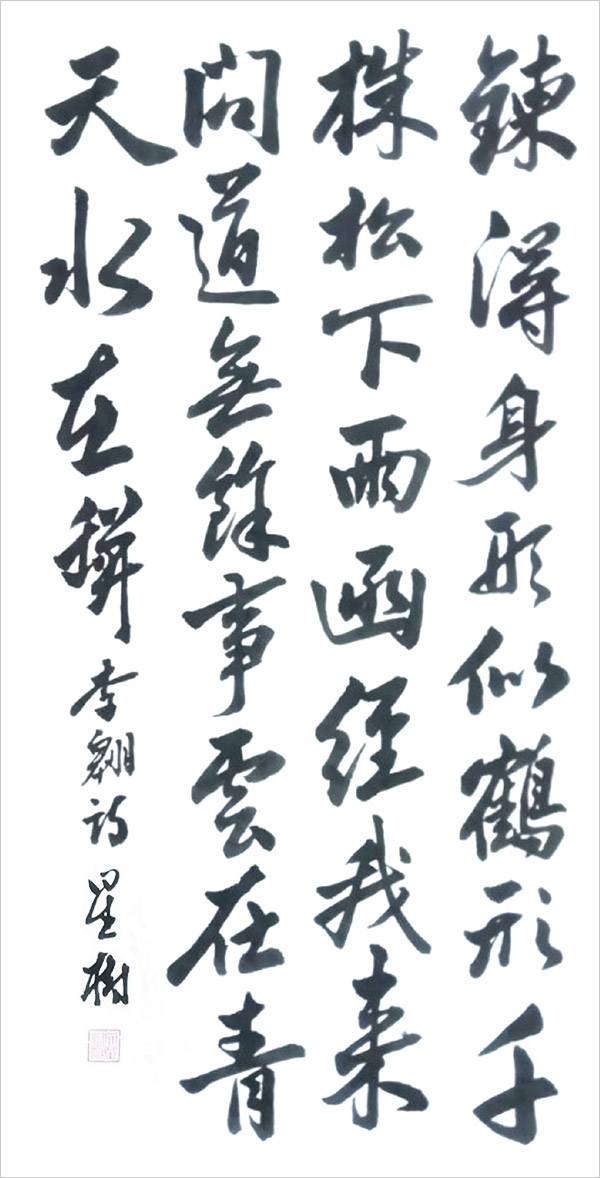 鍊得身形似鶴形千
株松下兩函經我來
問道無餘事雲在青
天水在缾 李翱詩 星樹